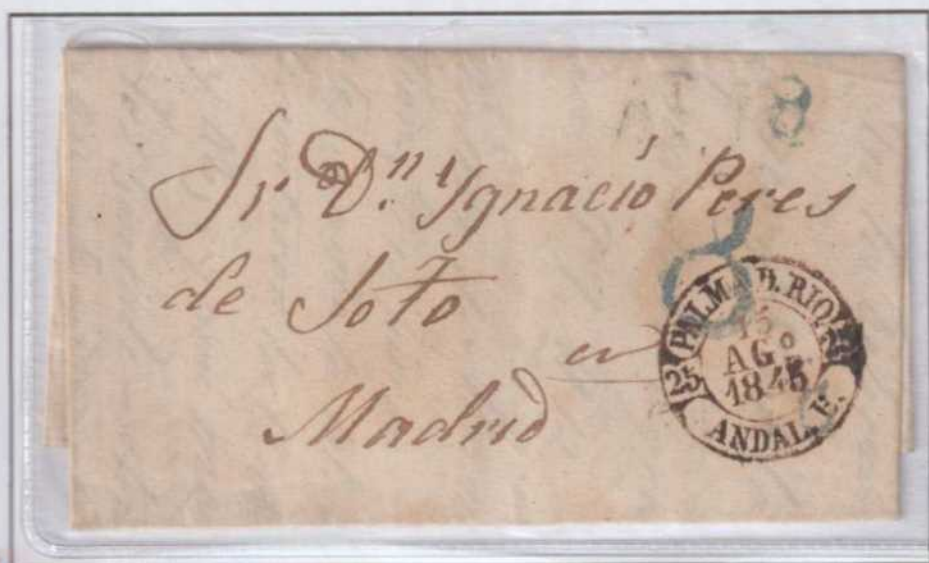 8
Sr. Dn. Ygnacio Peres
de Soto
en
Madrid
8
PALMA D. RIO
15
AGº
1845
25
ANDAL. B.